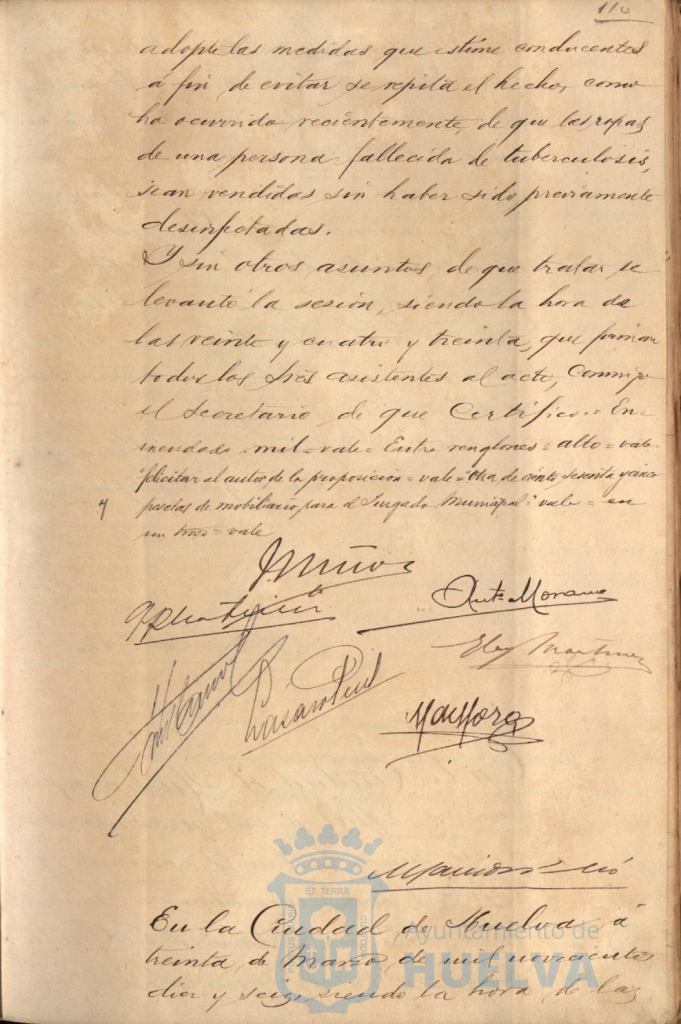 110
adopte las medidas que estime conducentes
a fin de evitar se repita el hecho, como
ha ocurrido recientemente, de que las ropas
de una persona fallecida de tuberculosis,
sean vendidas sin haber sido previamente
desinfectadas.
Y sin otros asuntos de que tratar se
levantó la sesión, siendo la hora de
las veinte y cuatro y treinta, que firman
todos los Sres asistentes al acto, conmigo
el Secretario de que Certifico.= En-
mendado = mil = vale = Entre renglones = alto = vale
"felicitar al autor de la proposicion = vale = Otra de ciento sesenta y cinco
pesetas de mobiliario para el Juzgado Municipal" vale = en
un trozo = vale
Ant. Morano
Eloy Martinez
En la Ciudad de Huelva á
treinta de Marzo de mil novecientos
diez y seis, siendo la hora de las
ET TERRÆ
Ayuntamiento de
HUELVA